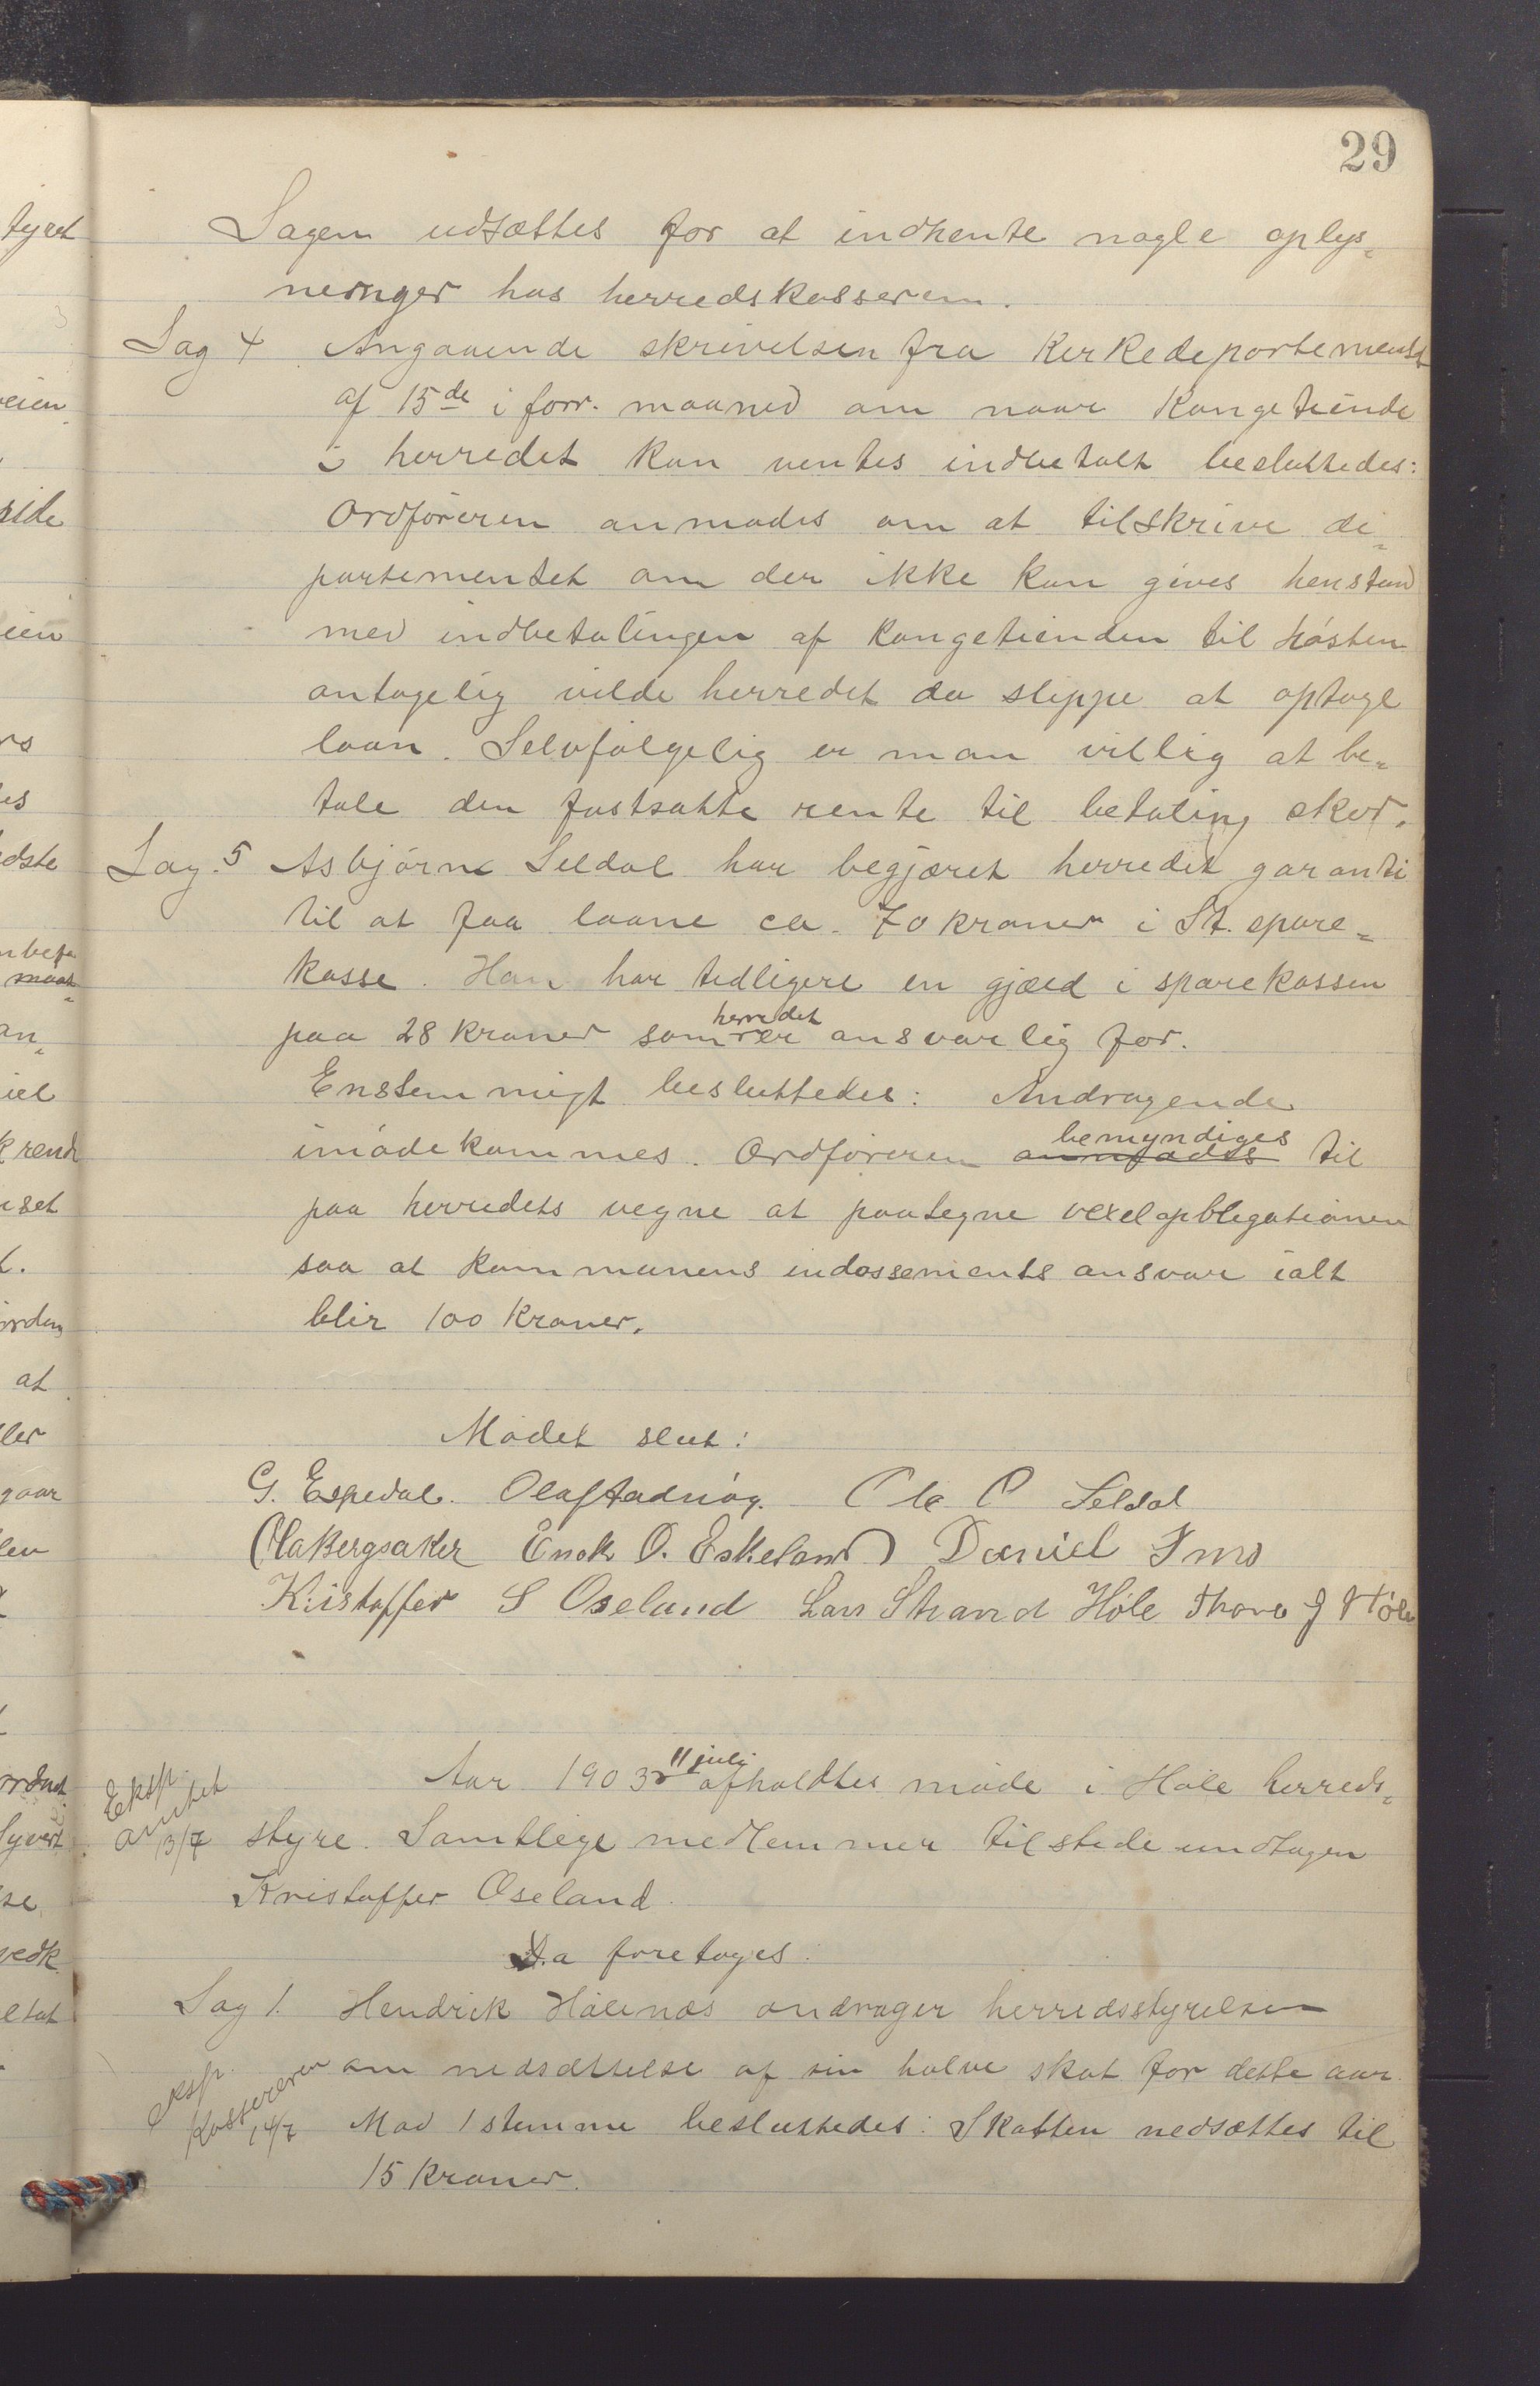 29
Sagen udsættes for at indhente nogle oplys=
ninger hos herredskassereren.
Sag 4 Angaaende skrivelsen fra Kirkedepartementet
af 15de i forr. maaned om naar Kongetiende
i herredet kan ventes indbetalt besluttedes:
Ordføreren anmodes om at tilskrive de=
partementet om der ikke kan gives henstand
med indbetalingen af kongetienden til høsten
antagelig vilde herredet da slippe at optage
laan. Selvfølgelig er man villig at be=
tale den fastsatte rente til betaling sker.
Sag. 5 Asbjørn Seldal har begjæret herredet garanti
til at faa laane ca. 70 kroner i St. spare=
kasse. Han har tidligere en gjæld i sparekassen
paa 28 kroner som herredet er ansvarlig for.
Enstemmigt besluttedes: Andragende
imødekommes. Ordføreren anmodes bemyndiges til
paa herredets vegne at paategne vexelopbligationen
saa at kommunens indossements ansvar ialt
blir 100 kroner.
Mødet slut:
G. Espedal. Olaf Ola O Seldal
Ola Bergsaker Enok O. Eskeland Daniel Ims
Kristoffer S Oseland Lars Strand Høle J Høle
Aar 1903 11 juli afholdtes møde i Høle herreds=
styre. Samtlige medlemmer tilstede undtagen
Kristoffer Oseland.
Eksp. amtet 13/7
Da foretoges:
Sag 1. Hendrik Hølenæs andrager herredsstyrelsen
om nedsættelse af sin halve skat for dette aar.
Mod 1 stemme besluttedes: Skatten nedsættes til
15 kroner.
eksp. Kassereren 14/7